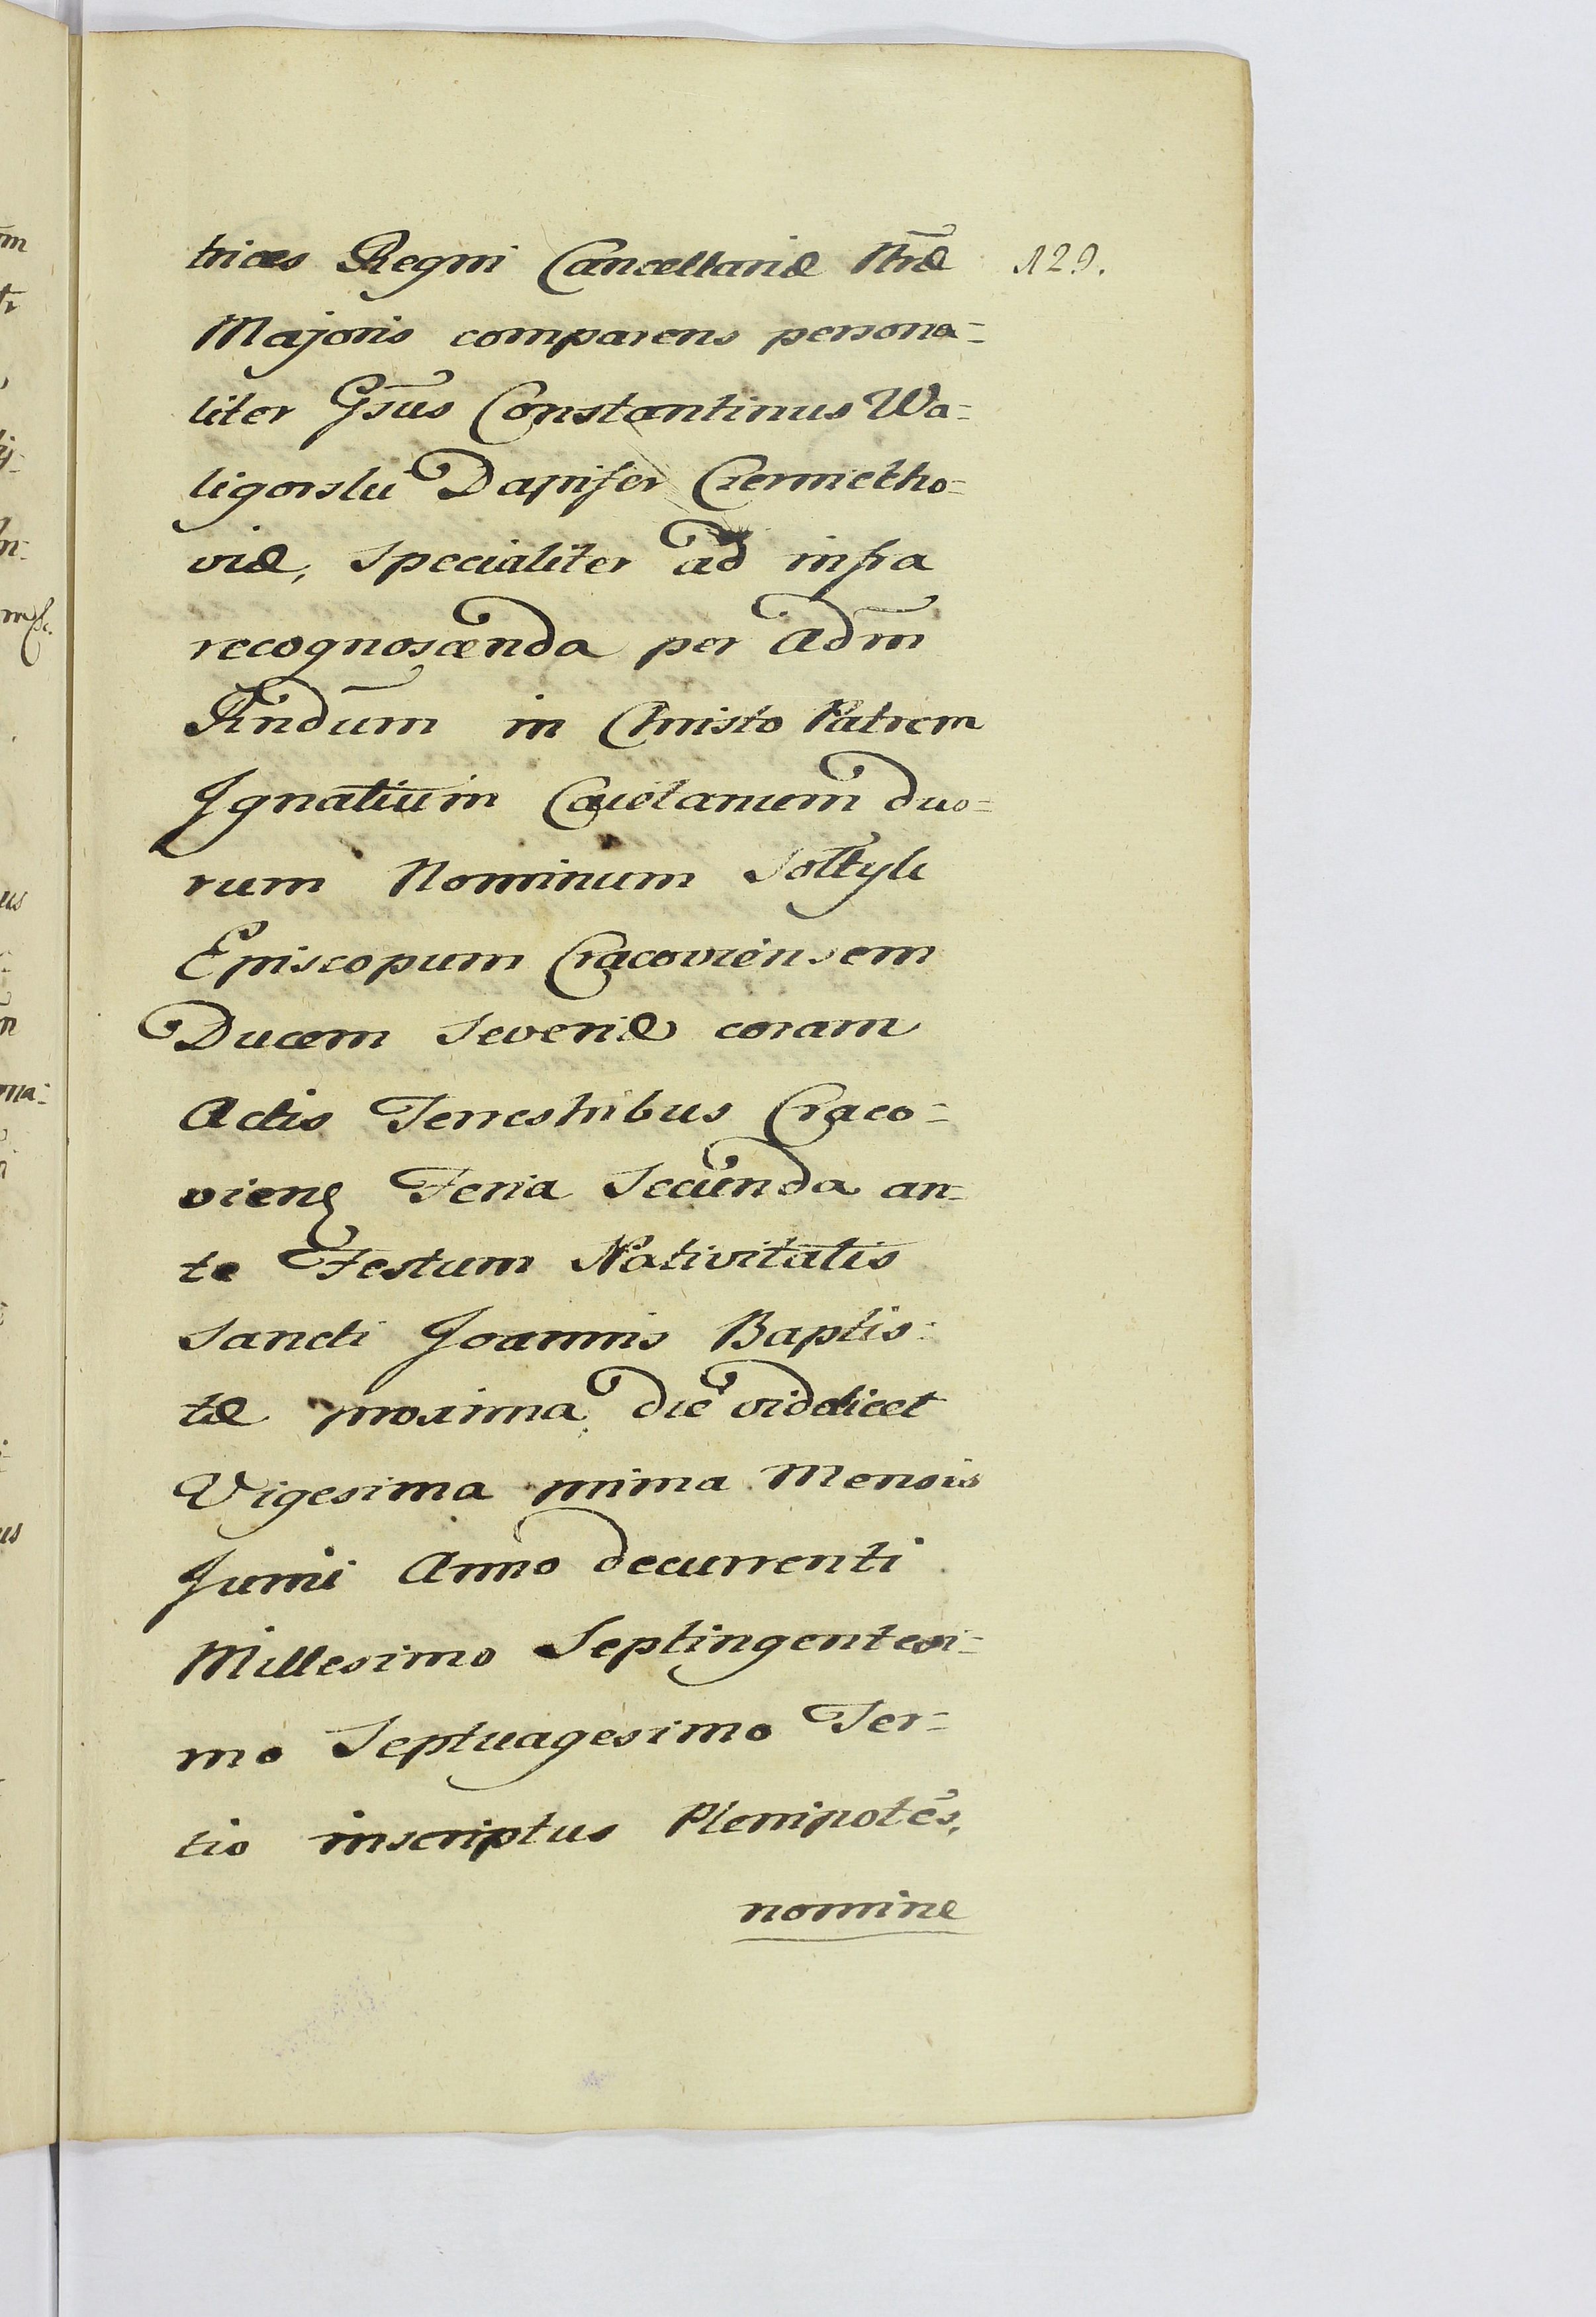 trices Regni Cancellariæ Nr̃æ 129.
Majoris comparens persona=
liter Gr̃sus Constantinus Wa=
ligorski Dapifer Czerniecho=
viæ, specialiter ad infra
recognoscenda per Adm̃
Rndum in Christo Patrem
Ignatium Caietanum duo=
rum Nominum Sołtyk
Episcopum Cracoviensem
Ducem Severiæ coram
Actis Terrestribus Craco=
vien̄ Feria Secunda an=
te Festum Nativitatis
Sancti Joannis Baptis=
tæ proxima die videlicet
Vigesima prima Mensis
Junii Anno decurrenti
Millesimo Septingentesi=
mo Septuagesimo Ter=
tio inscriptus Plenipotẽs,
nomine